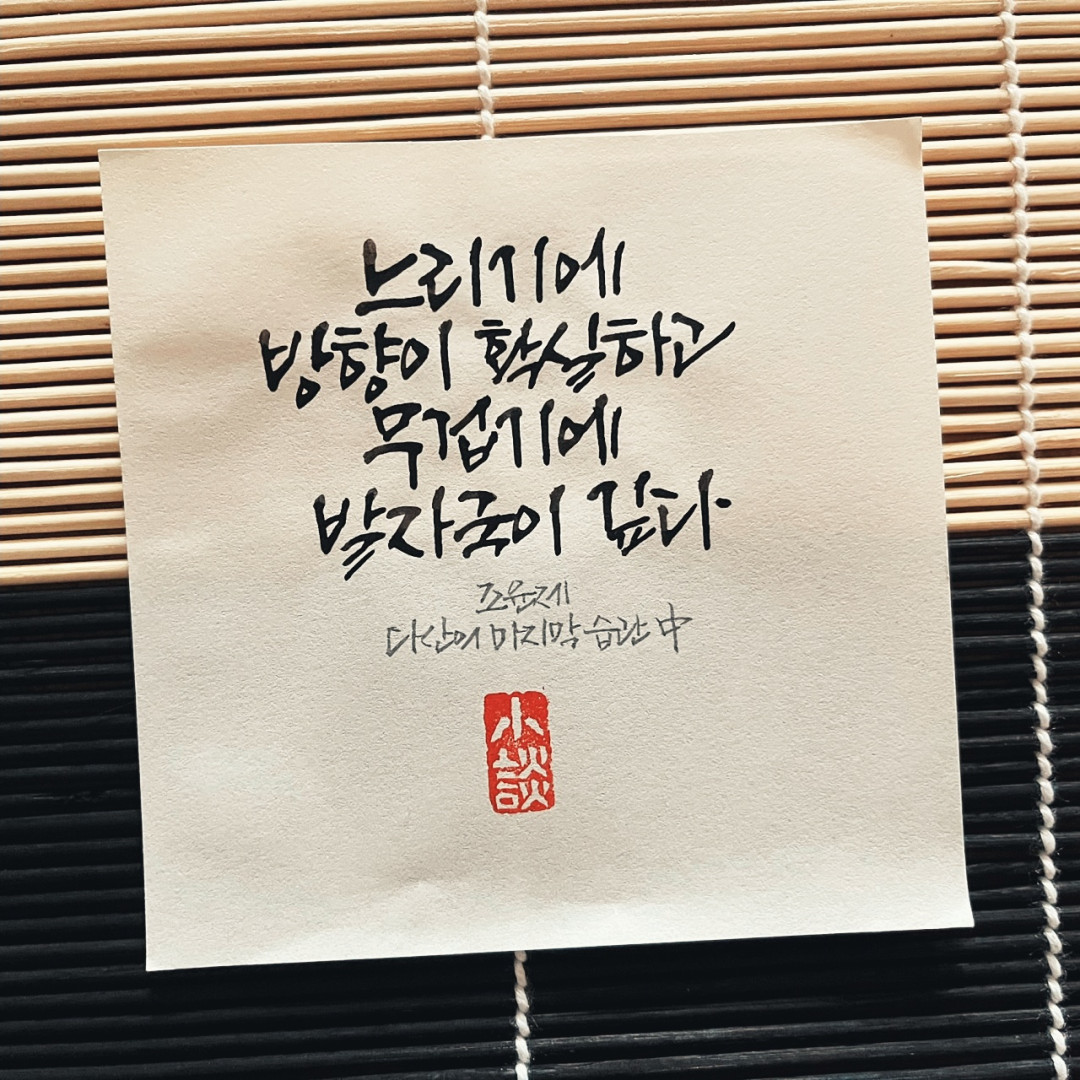 느리기에
방향이 확실하고
무겁기에
발자국이 깊다
조윤제
다산의 마지막 습관 中
小談